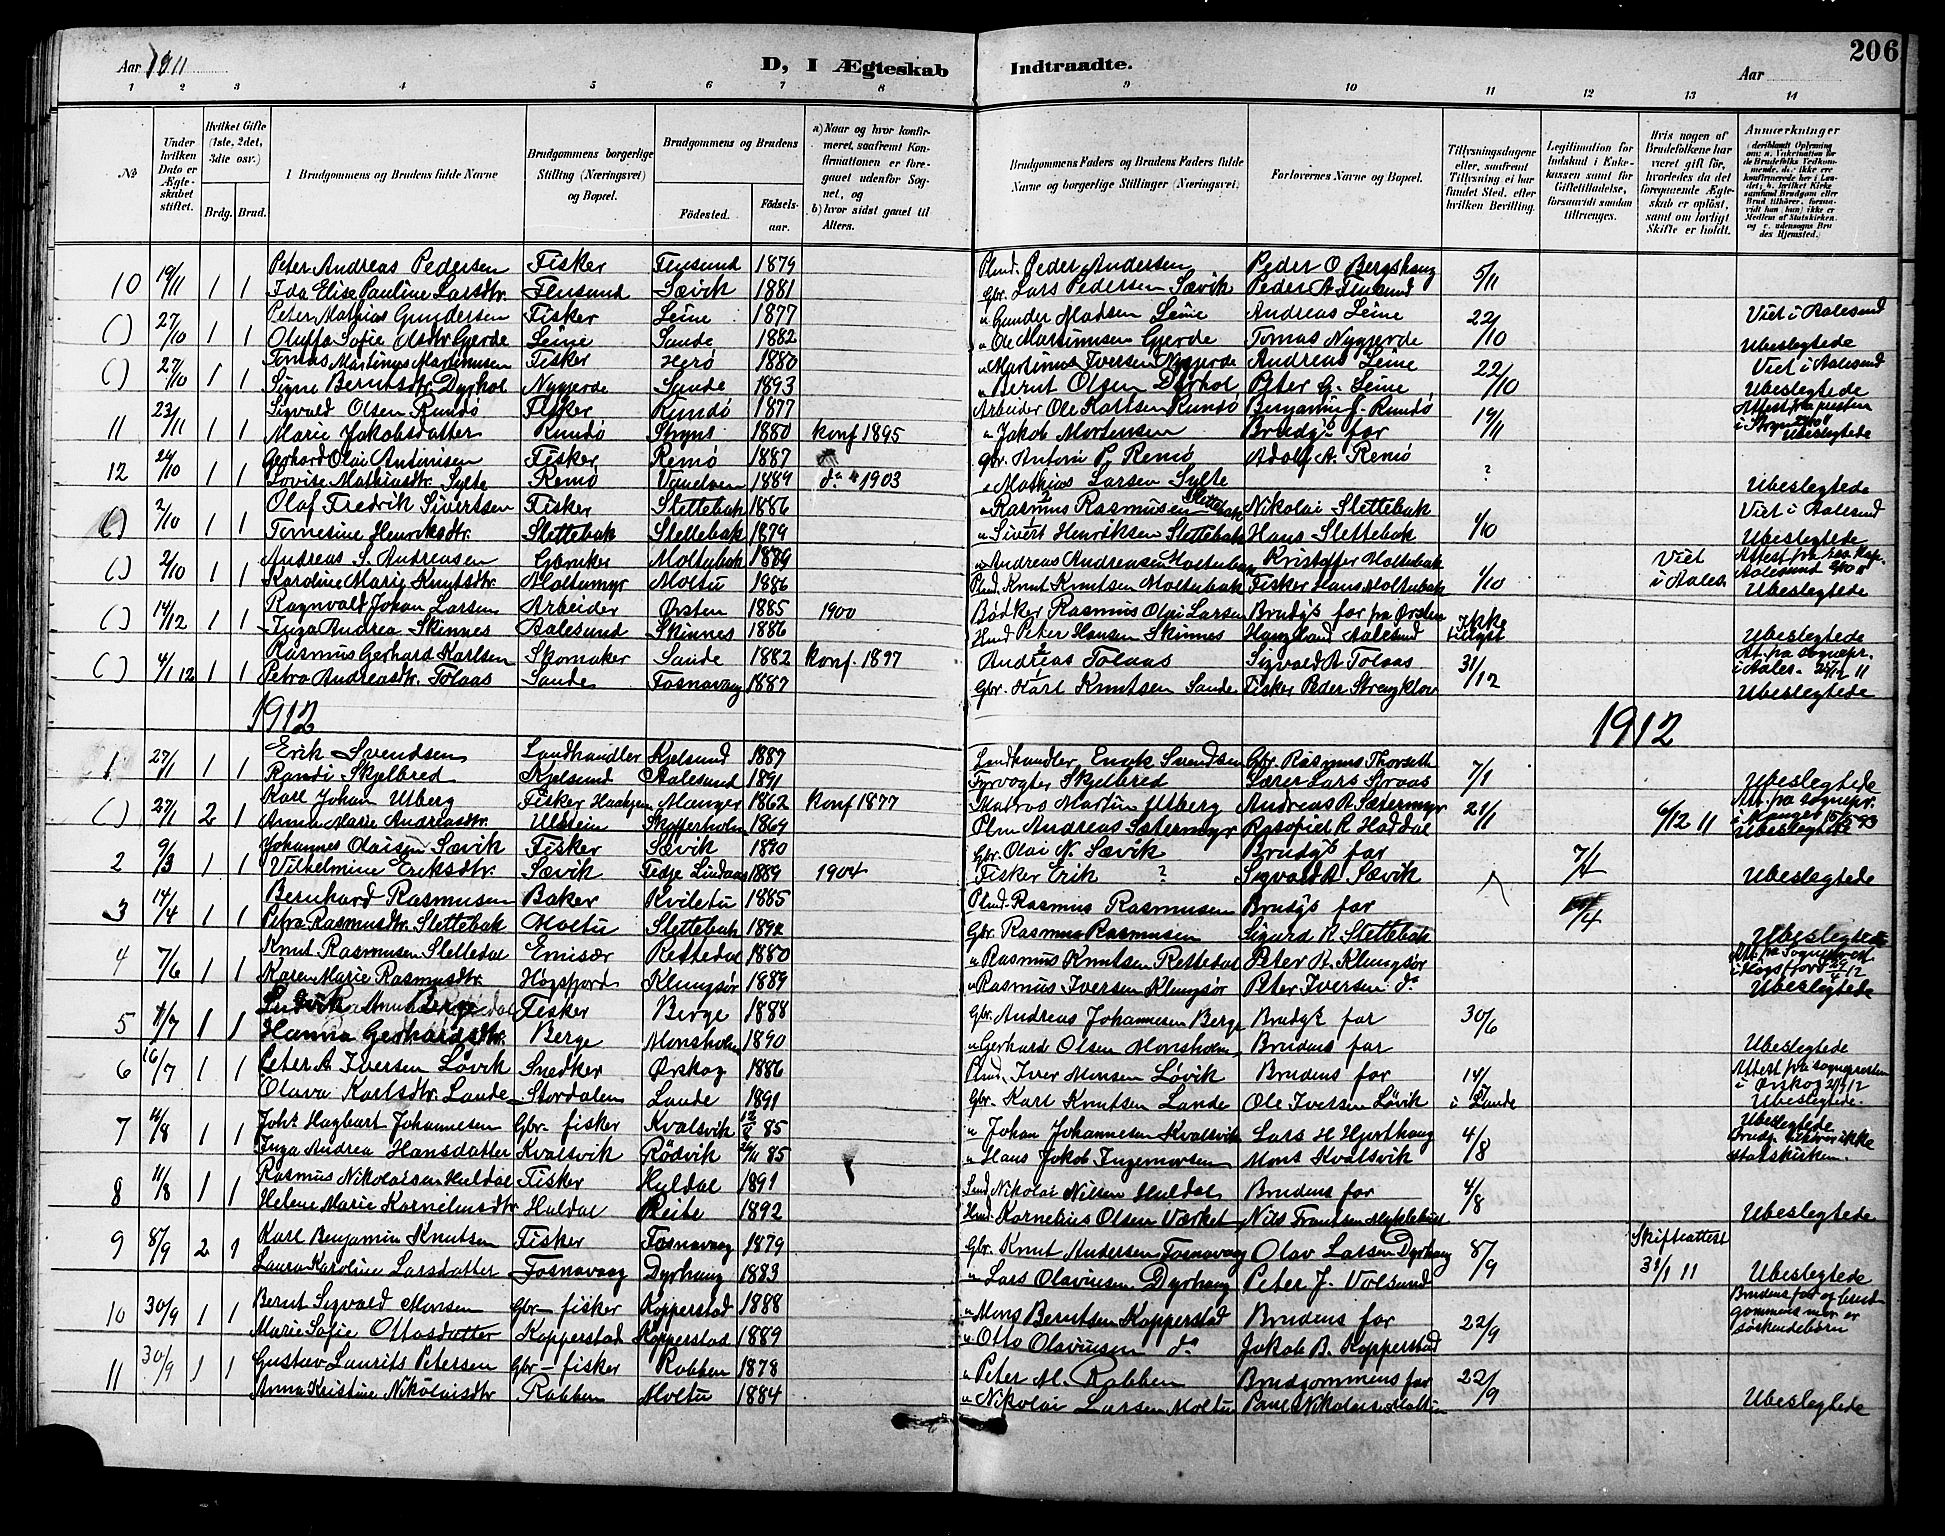 Aar 1911 D, I Ægteskab Indtraadte. Aar 206
1 2 3 4 5 6 7 8 9 10 11 12 13 14
No
Under hvilken Dato er Ægteskabet stiftet.
Hvilket Gifte (1ste, 2det, 3die osv.)
Brdg. Brud.
Brudgommens og Brudens fulde Navne
Brudgommens borgerlige Stilling (Næringsvei) og Bopæl.
Brudgommens og Brudens
Fødested. Fødselsaar.
a) Naar og hvor konfirmeret, saafremt Konfirmationen er foregaaet udenfor Sognet, og
b) hvor sidst gaaet til Alters.
Brudgommens Faders og Brudens Faders fulde Navne og borgerlige Stillinger (Næringsvei)
Forlovernes Navne og Bopæl.
Tillysningsdagene eller, saafremt Tillysning ei har fundet Sted, efter hvilken Bevilling.
Legitimation for Indskud i Enkekassen samt for Giftetilladelse, forsaavidt saadan tiltrænges.
Hvis nogen af Brudefolkene har været gift før, hvorledes da det foregaaende Ægteskab er opløst, samt om lovligt Skifte er holdt.
Anmærkninger
10 19/11 1 1 Peter Andreas Pedersen Fisker Flusund 1879 Plmd. Peder Andersen Peder O Bergshaug 5/11
Ida Elise Pauline Larsdtr. Flusund Sævik 1881 Gbr. Lars Pedersen Sævik Peder A Flusund
( ) 27/10 1 1 Peter Mathias Gundersen Fisker Leine 1877 " Gunder Madsen Leine Andreas Leine 22/10 Viet i Aalesund
Oluffa Sofie Olsdtr Gjerde Leine Sande 1882 " Ole Martinusen Gjerde Tomas Nygjerde Ubeslegtede
( ) 27/10 1 1 Tomas Martinus Martinusen Fisker Herø 1880 " Martinus Iversen Nygjerde Andreas Leine 22/10 Viet i Aalesund
Signe Berntsdtr. Dyrhol Nygjerde Sande 1893 " Bernt Olsen Dyrhol Peter G. Leine Ubeslegtede
11 23/11 1 1 Sigvald Olsen Rundø Fisker Rundø 1877 Arbeider Ole Karlsen Rundø Benjamin J. Rundø 19/11 Attest fra presten
Marie Jakobsdatter Rundø Stryns 1880 konf 1895 " Jakob Mortensen Brudg.s far i Stryn Ubeslegtede
12 24/10 1 1 Gerhard Olai Antonisen Fisker Remø 1887 Gbr. Antoni P. Remø Adolf A. Remø ?
Lovise Mathiasdtr. Sylte Remø Vanelven 1889 do " 1903 " Mathias Larsen Sylte Ubeslegtede
( ) 2/10 1 1 Olaf Fredrik Sivertsen Fisker Slettebak 1886 " Rasmus Rasmusen Slettebak Nikolai Slettebak 1/10 Viet i Aalesund
Tomesine Henriksdtr. Slettebak Slettebak 1879 " Sivert Henriksen Slettebak Hans Slettebak Ubeslegtede
( ) 2/10 1 1 Andreas S. Andreasen Moltubak 1889 " Andreas Andreasen Moltubak Kristoffer Moltubak 1/10 Viet i Aales. Attest fra res. kap. Aalesund
Karoline Marie Knutsdtr. Moltumyr Moltu 1886 Plmd. Knut Knutsen Moltubak Fisker Hans Moltubak Ubeslegtede
( ) 14/12 1 1 Ragnvald Johan Larsen Arbeider Ørsten 1885 1900 Bødker Rasmus Olai Larsen Brudg.s far fra Ørsten Ikke tillyst
Inga Andrea Skinnes Aalesund Skinnes 1886 Hmd Peter Hansen Skinnes Aalesund Ubeslegtede
( ) 4/1 12 1 1 Rasmus Gerhard Karlsen Skomaker Sande 1882 konf. 1897 Andreas Tolaas Sigvald A Tolaas 31/12 At. fra sognepr. i Aales.
Petra Andreasdtr. Tolaas Sande Fosnavaag 1887 Gbr. Karl Knutsen Sande Fisker Peder Ubeslegtede
1912 1912
1 27/1 1 1 Erik Svendsen Landhandler Kjelsund 1887 Landhandler Enok Svendsen Gbr. Rasmus Thorseth 7/1
Randi Skjelbred Kjelsund Aalesund 1891 Fyrvogter Skjelbred Lærer Lars Ubeslegtede
( ) 27/1 2 1 Karl Johan Utberg Fisker Manger 1862 konf 1877 Matros Martin Utberg Andreas A. Sætermyr 21/1 6/12 11 Att. fra sognepr. i Manger
Anna Marie Andreasdtr. Ulstein 1869 Plm Andreas Sætermyr R Haddal Ubeslegtede
2 9/3 1 1 Johannes Olaisen Sævik Fisker Sævik 1890 Gbr. Olai N. Sævik Brudg.s far
Vilhelmine Eriksdtr. Sævik Fedje Lindaas 1889 1904 Fisker Erik ? Sigvald A Sævik Ubeslegtede
3 14/4 1 1 Bernhard Rasmusen Baker Kviletu 1885 Plmd. Rasmus Rasmusen Brudg.s far
Petra Rasmusdtr. Slettebak Moltu Slettebak 1892 Gbr. Rasmus Rasmusen Sigurd R Slettebak Ubeslegtede
4 7/6 1 1 Knut Rasmusen Slettedal Emisær Rettedal 1880 " Rasmus Knutsen Rettedal Peter R. Klungsør
Karen Marie Rasmusdtr. Høgsfjord Klungsør 1889 " Rasmus Iversen Klungsør Peter Iversen do Ubeslegtede
5 7/7 1 1 Berge Fisker Berge 1888 Gbr. Andreas Johannesen Berge Brudg.s far 30/6
Hanna Gerhardsdtr. Berge Monsholm 1890 " Gerhard Olsen Monsholm Brudens far Ubeslegtede
6 16/7 1 1 Peter A Iversen Løvik Snedker Ørskog 1886 Plmd. Iver Monsen Løvik Brudens far 14/7 i Sande Attest fra sognepresten i Ørskog
Olava Karlsdtr. Sande Stordalen Sande 1891 Gbr. Karl Knutsen Sande Ole Iversen Løvik Ubeslegtede.
7 4/8 1 1 Johs Hagbart Johannesen Gbr-fisker Kvalsvik 85 " Johan Johannesen Kvalsvik Lars H Hjorthaug 4/8 Ubeslegtede
Inga Andrea Hansdatter Kvalsvik Rødvik 85 " Hans Jakob Ingemortsen Mons Kvalsvik Brudg. tilhører ikke statskirken.
8 11/8 1 1 Rasmus Nikolaisen Huldal Fisker Huldal 1891 Nikolai Nilsen Huldal Brudens far 4/8
Helene Marie Korneliusdtr Huldal Reite 1892 Hmd. Kornelius Olsen Værket Nils Frantsen Myklebust Ubeslegtede
9 8/9 2 1 Karl Benjamin Knutsen Fisker Fosnavaag 1879 Gbr. Knut Andersen Fosnavaag Olav Larsen Dyrhaug 8/9 Skifteattest 31/1 11
Laura Karoline Larsdatter Fosnavaag Dyrhaug 1883 " Lars Olavinsen Dyrhaug Peter J. Volsund Ubeslegtede
10 30/9 1 1 Bernt Sigvald Monsen Gbr-fisker Kopperstad 1888 " Mons Berntsen Kopperstad Brudens far 22/9 Brudens far og brudgommens mor er søskendebørn
Marie Sofie Ottosdatter Kopperstad Kopperstad 1889 " Otto Olavinsen do Jakob B. Kopperstad
11 30/9 1 1 Gustav Laurits Petersen Gbr-fisker Robben 1878 " Peter M. Robben Brudgommens far 22/9
Anna Kristine Nikolaisdtr Robben Moltu 1884 " Nikolai Larsen Moltu Paul Nikolaisen Moltu Ubeslegtede